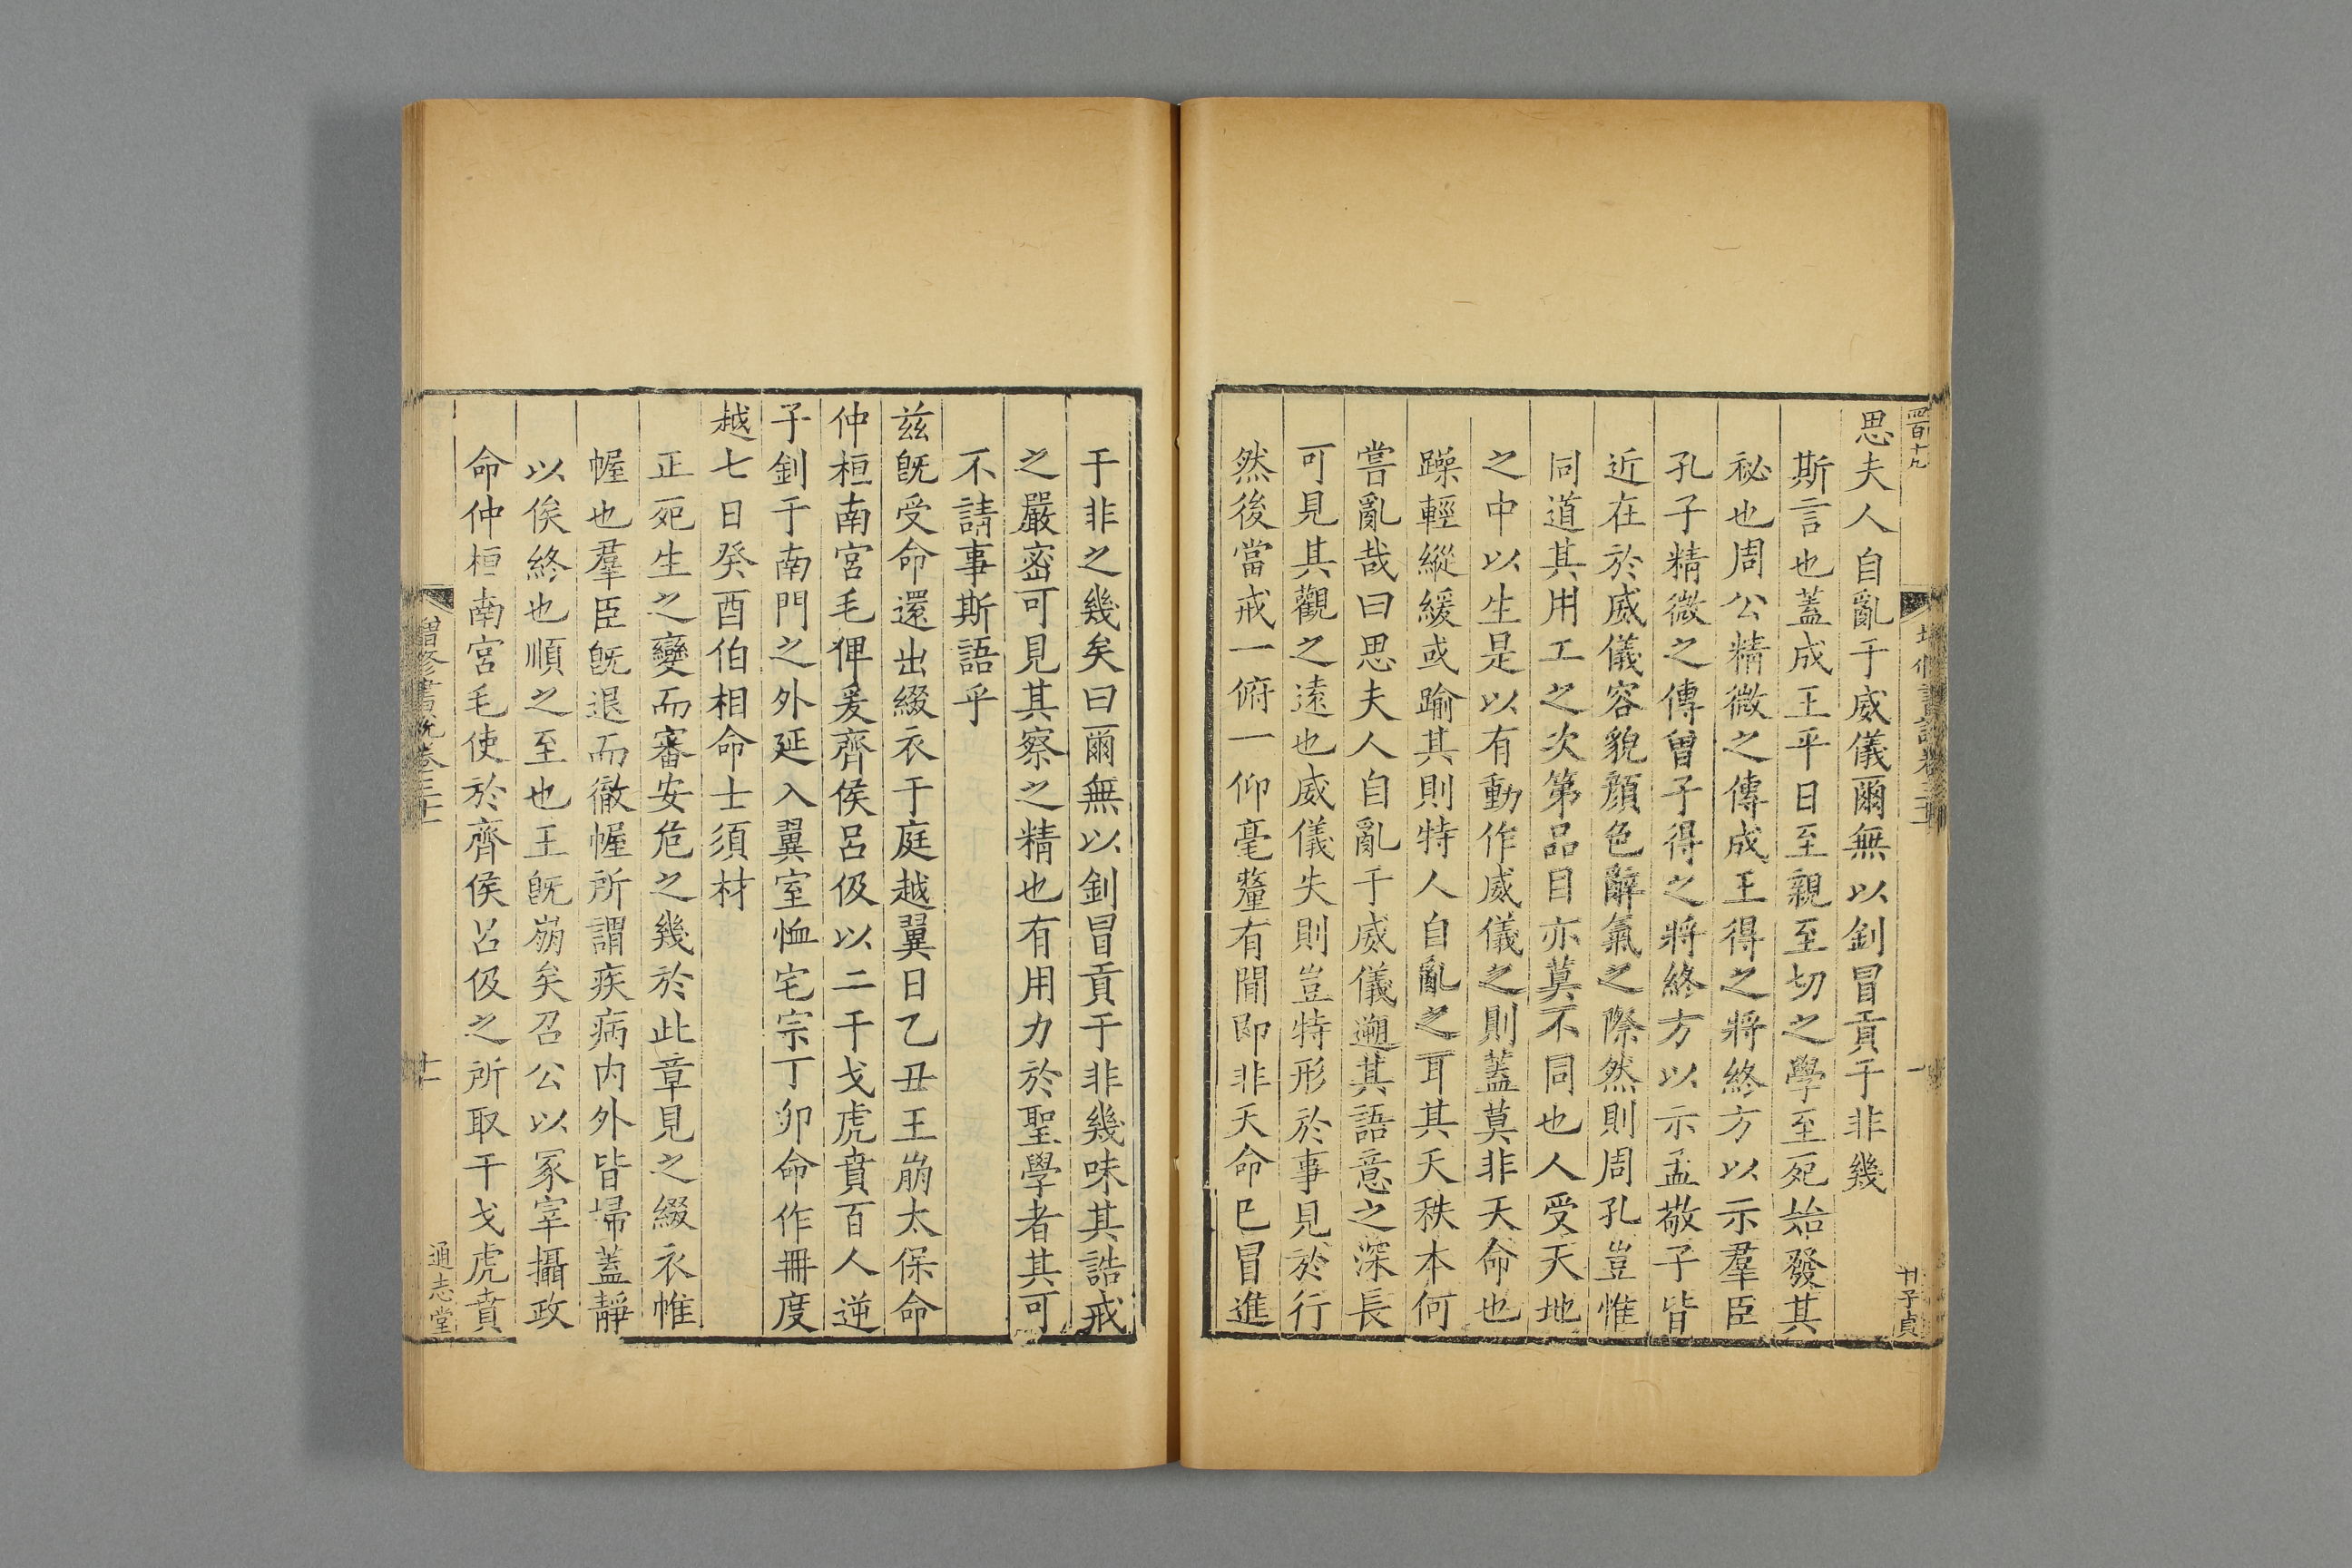 四百十九
思夫人自亂于威儀爾無以釗冒貢于非幾
斯言也蓋成王平日至親至切之學至死始發其
祕也周公精微之傳成王得之將終方以示羣臣
孔子精微之傳曾子得之將終方以示孟敬子皆
近在於威儀容貌顏色辭氣之際然則周孔豈惟
同道其用工之次第品目亦莫不同也人受天地
之中以生是以有動作威儀之則蓋莫非天命也
躁輕縱緩或踰其則特人自亂之耳其天秩本何
嘗亂哉曰思夫人自亂于威儀遡其語意之深長
可見其觀之遠也威儀失則豈特形於事見於行
然後當戒一俯一仰毫釐有間即非天命已冒進
于非之幾矣曰爾無以釗冒貢于非幾味其誥戒
之嚴密可見其察之精也有用力於聖學者其可
不請事斯語乎
茲旣受命還出綴衣于庭越翼日乙丑王崩太保命
仲桓南宮毛俾爰齊侯呂伋以二干戈虎賁百人逆
子釗于南門之外延入翼室恤宅宗丁卯命作冊度
越七日癸酉伯相命士須材
正死生之變而審安危之幾於此章見之綴衣帷
幄也羣臣旣退而徹幄所謂疾病内外皆埽蓋靜
以俟終也順之至也王旣崩矣召公以冢宰攝政
命仲桓南宮毛使於齊侯呂伋之所取干戈虎賁
增修書說卷三十
通志堂